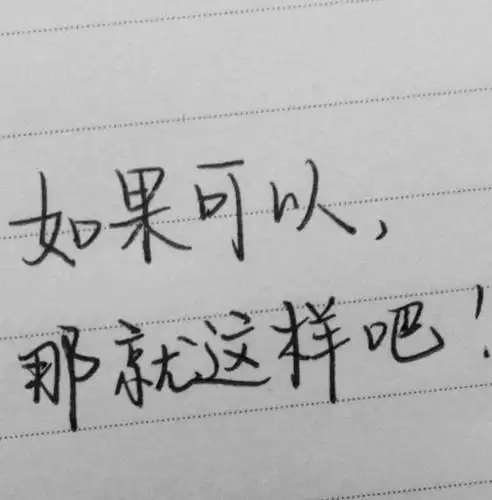 如果可以,
那就这样吧!